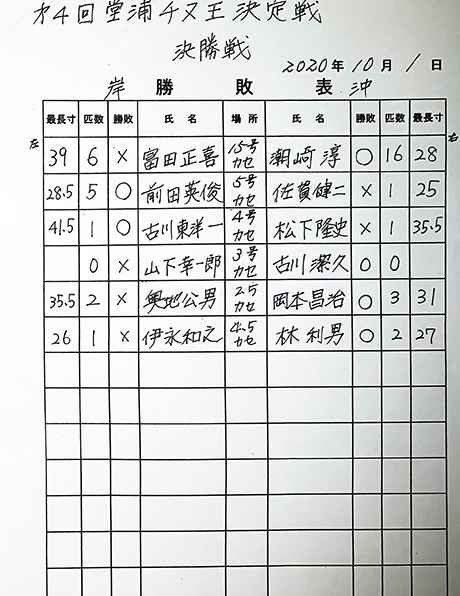 才4回堂浦チヌ王決定戦
決勝戦
2020年10月1日
岸 勝敗表 沖
左 右
最長寸 匹数 勝敗 氏名 場所 氏名 勝敗 匹数 最長寸
39 6 × 富田正喜 15号カセ 潮崎淳 ○ 16 28
28.5 5 ○ 前田英俊 5号カセ 佐賀健二 × 1 25
41.5 1 ○ 古川東洋一 4号カセ 松下隆史 × 1 35.5
0 × 山下幸一郎 3号カセ 古川潔久 ○ 0
35.5 2 × 奥地公男 2.5カセ 岡本昌治 ○ 3 31
26 1 × 伊永和之 4.5カセ 林利男 ○ 2 27